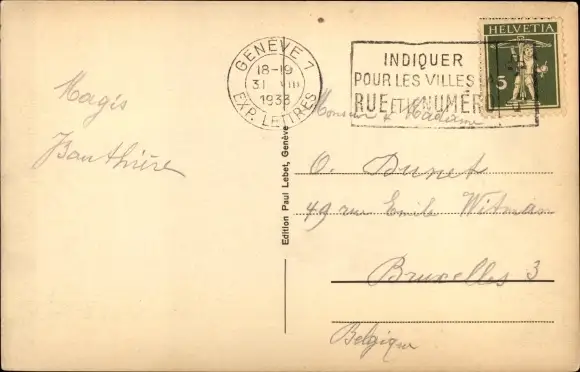 HELVETIA
5
GENÈVE 1
18-19
31 VIII
1933
EXP. LETTRES
INDIQUER
POUR LES VILLES
RUE ET NUMÉRO
Magis
Bauthière
Monsieur & Madame
O. Dunet
49 rue Emile Witman
Bruxelles 3
Belgique
Edition Paul Lebet, Genève